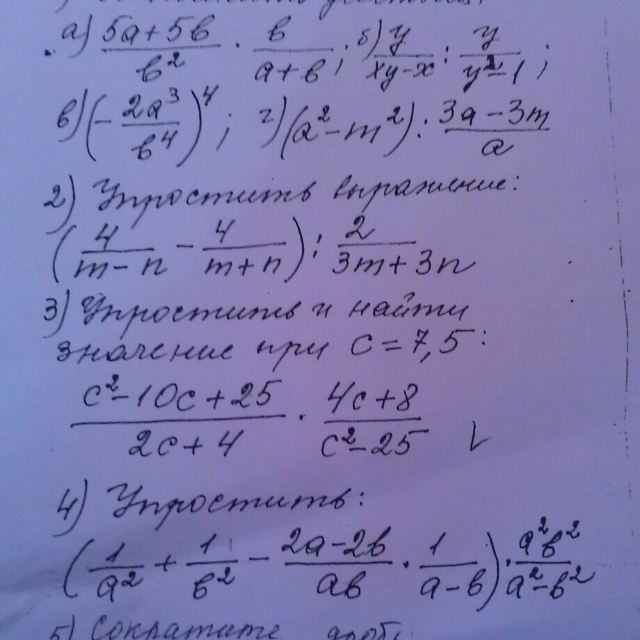 а) (5a+5b)/b² · b/(a+b); б) y/(xy-x) : y/(y²-1);
в) (-2a³/b⁴)⁴; г) (a²-m²) : (3a-3m)/a
2) Упростить выражение:
(4/(m-n) - 4/(m+n)) : 2/(3m+3n)
3) Упростить и найти
значение при c=7,5:
(c²-10c+25)/(2c+4) · (4c+8)/(c²-25)
4) Упростить:
(1/a² + 1/b² - (2a-2b)/ab · 1/(a-b)) · a²b²/(a²-b²)
5) Сократите